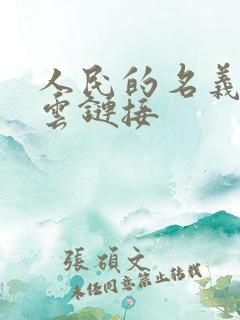 人民的名義
雲鏈接
張碩文
未經同意禁止轉載